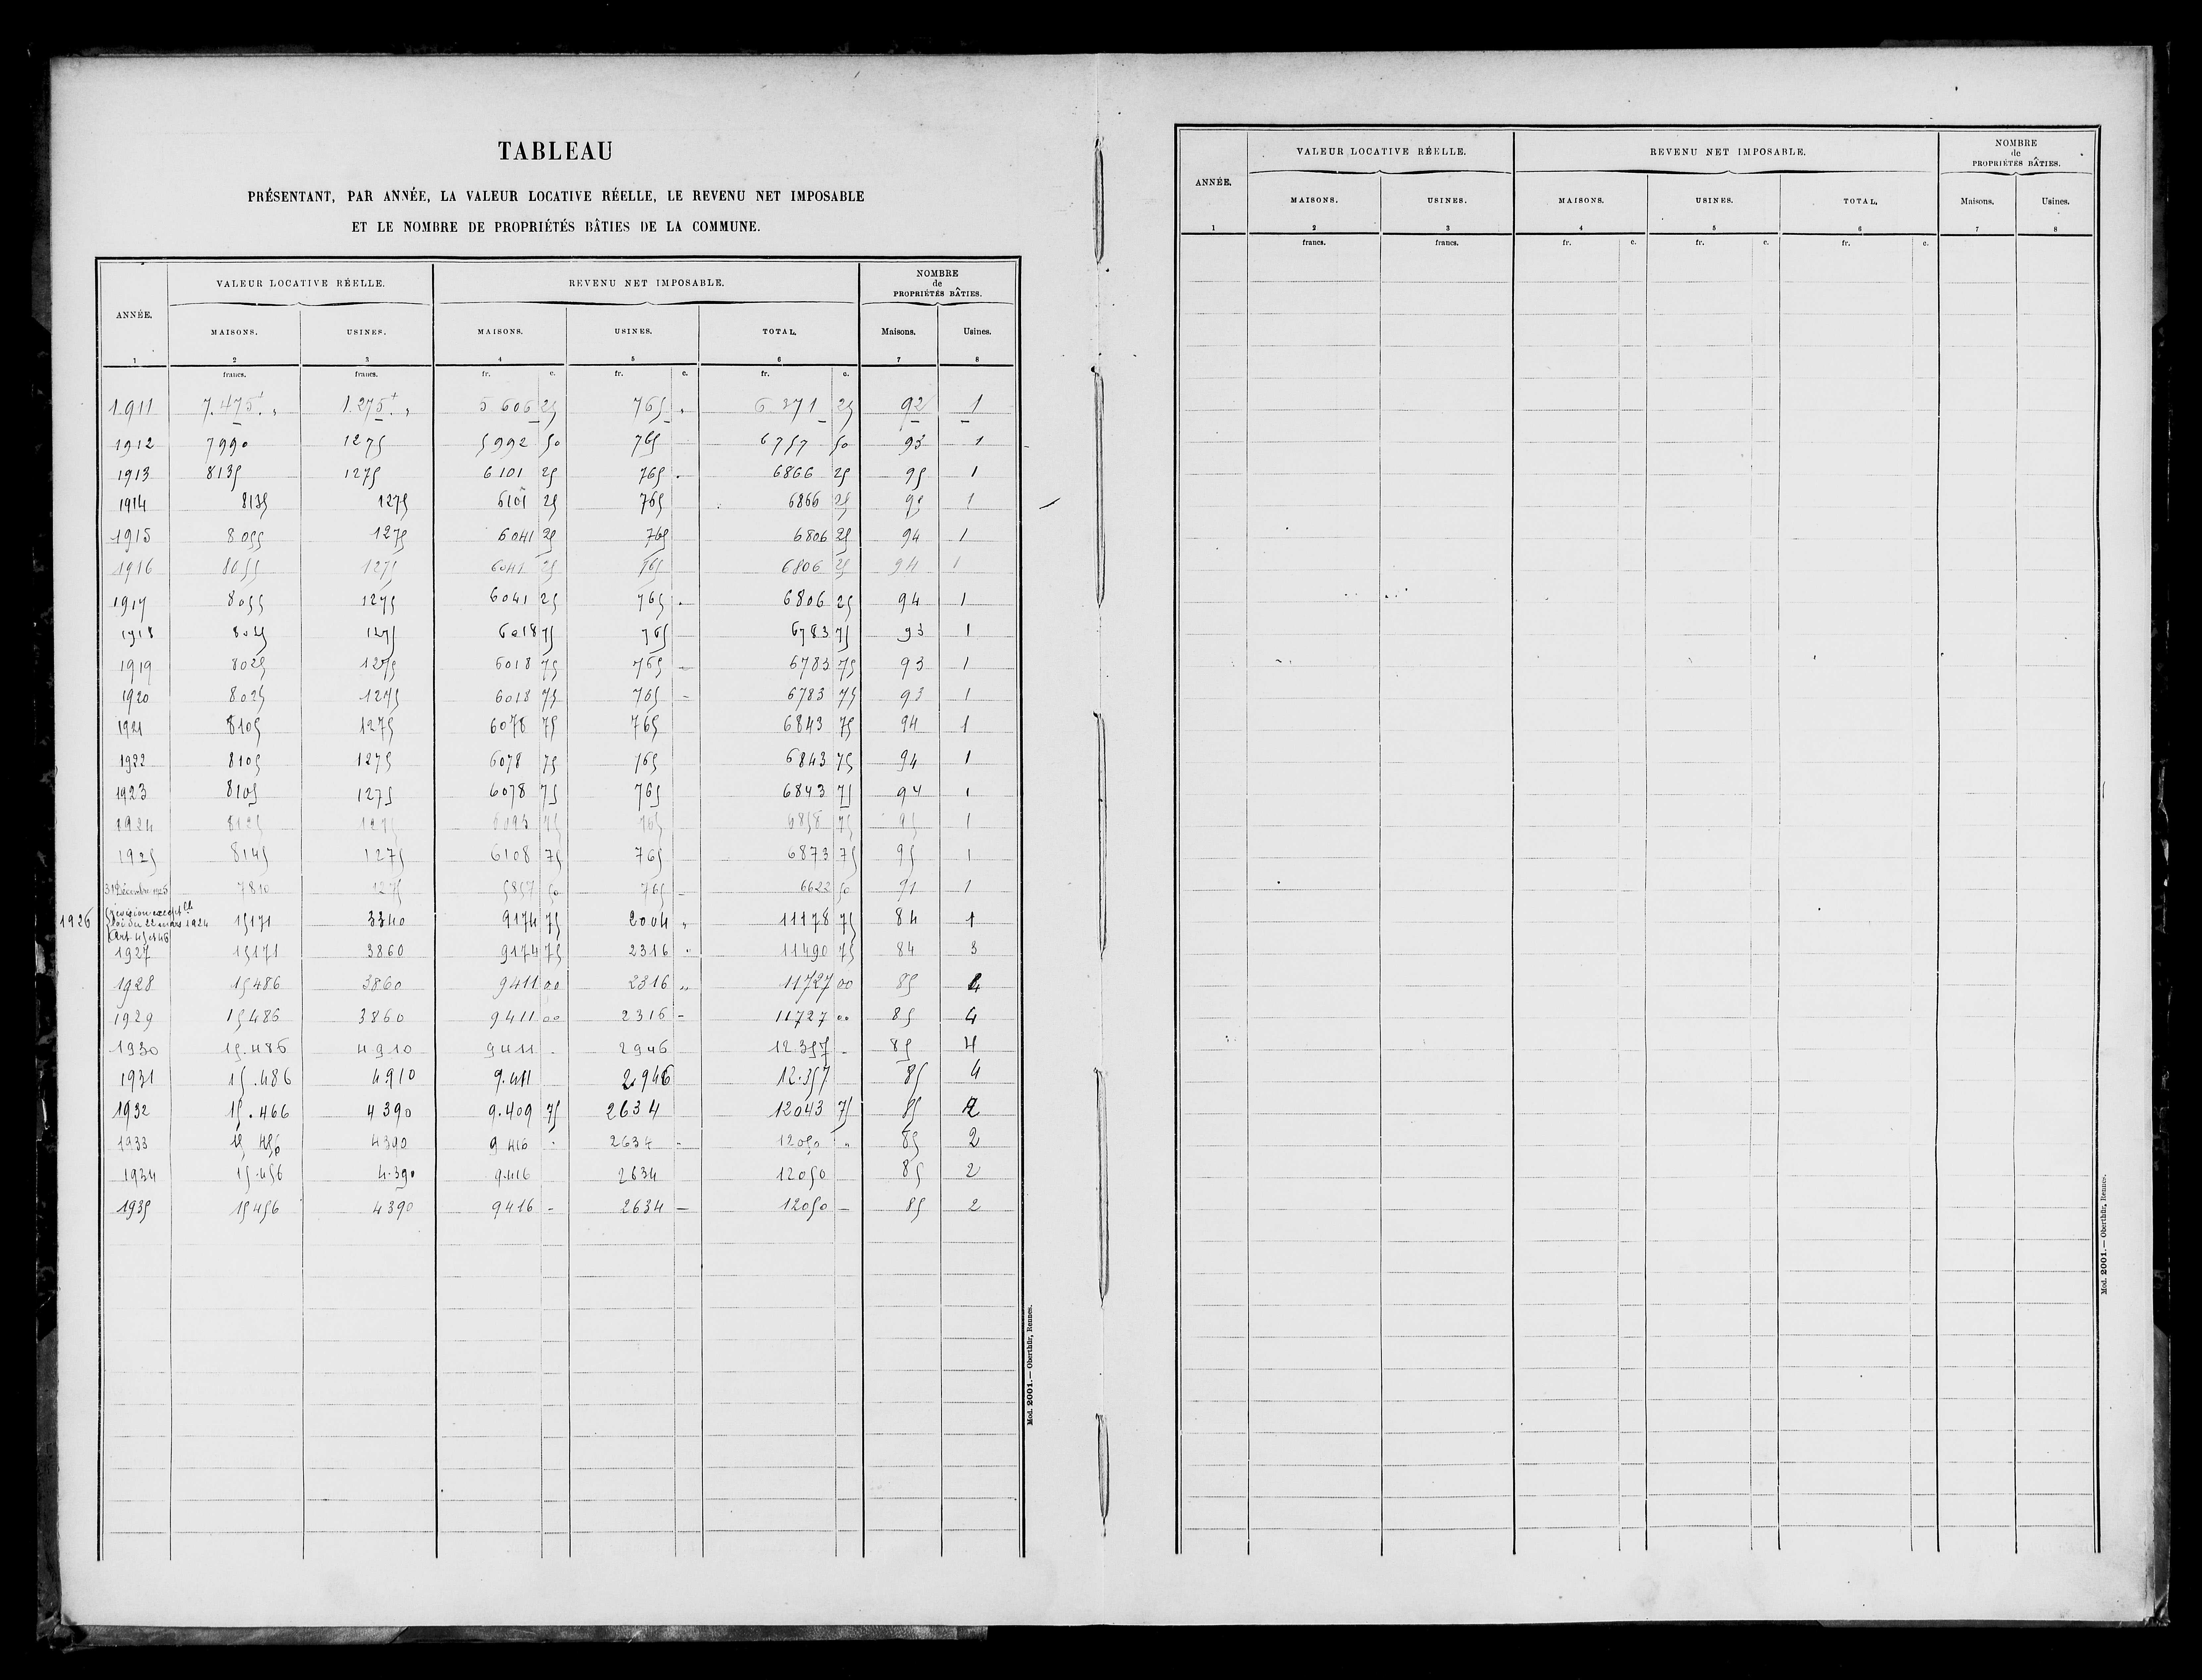 TABLEAU
PRÉSENTANT, PAR ANNÉE, LA VALEUR LOCATIVE RÉELLE, LE REVENU NET IMPOSABLE
ET LE NOMBRE DE PROPRIÉTÉS BÂTIES DE LA COMMUNE.
ANNÉE. VALEUR LOCATIVE RÉELLE. REVENU NET IMPOSABLE. NOMBRE de PROPRIÉTÉS BÂTIES.
MAISONS. USINES. MAISONS. USINES. TOTAL. Maisons. Usines.
1 2 3 4 5 6 7 8
francs. francs. fr. c. fr. c. fr. c.
1911 7.475f. „ 1.275f. „ 5 606 25 765 „ 6.371 25 92 1
1912 7990 1275 5992 50 765 6757 50 93 1
1913 8135 1275 6101 25 765 - 6866 25 95 1
1914 8135 1275 6101 25 765 6866 25 95 1
1915 8055 1275 6041 25 765 6806 25 94 1
1916 8055 1275 6041 25 765 6806 25 94 1
1917 8055 1275 6041 25 765 - 6806 25 94 1
1918 8025 1275 6018 75 765 6783 75 93 1
1919 8025 1275 6018 75 765 - 6783 75 93 1
1920 8025 1275 6018 75 765 - 6783 75 93 1
1921 8105 1275 6078 75 765 6843 75 94 1
1922 8105 1275 6078 75 765 6843 75 94 1
1923 8105 1275 6078 75 765 6843 75 94 1
1924 8125 1275 6093 75 765 6858 75 95 1
1925 8145 1275 6108 75 765 6873 75 95 1
31 Décembre 1925 7810 1275 5857 50 765 - 6622 50 91 1
1926 révision except.lle loi du 22 mars 1924 (Art. 45 et 46) 15171 3340 9174 75 2004 „ 11178 75 84 1
1927 15171 3860 9174 75 2316 „ 11490 75 84 3
1928 15486 3860 9411 00 2316 „ 11727 00 85 4
1929 15486 3860 9411 00 2316 - 11727 00 85 4
1930 15.486 4910 9411 - 2946 12.357 - 85 4
1931 15.486 4910 9.411 2.946 12.357 85 4
1932 15.466 4390 9.409 75 2634 12043 75 85 2
1933 4390 9416 - 2634 - 12050 „ 85 2
1934 15.456 4.390 9.416 2634 12050 85 2
1935 15456 4390 9416 - 2634 - 12050 - 85 2
Mod. 2001. — Oberthür, Rennes.
ANNÉE. VALEUR LOCATIVE RÉELLE. REVENU NET IMPOSABLE. NOMBRE de PROPRIÉTÉS BÂTIES.
MAISONS. USINES. MAISONS. USINES. TOTAL. Maisons. Usines.
1 2 3 4 5 6 7 8
francs. francs. fr. c. fr. c. fr. c.
Mod. 2001. — Oberthür, Rennes.